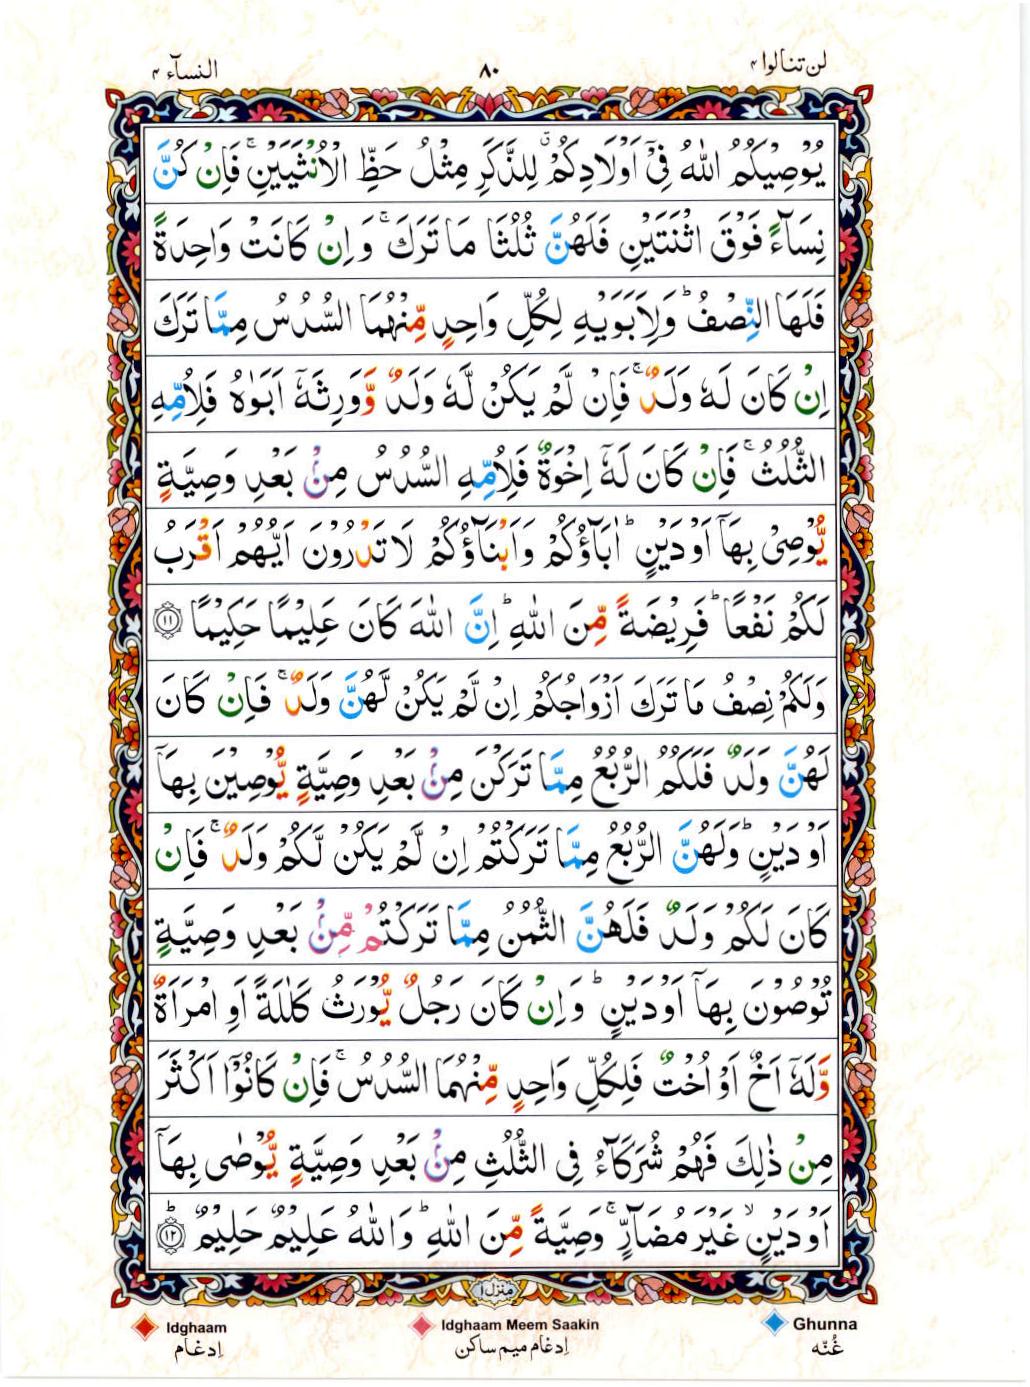 لن تنالوا ٤
٨٠
النسآء ٤
يُوْصِيْكُمُ اللّٰهُ فِيْۤ اَوْلَادِكُمْ ۗ لِلذَّكَرِ مِثْلُ حَظِّ الْاُنْثَيَيْنِ ۚ فَاِنْ كُنَّ
نِسَآءً فَوْقَ اثْنَتَيْنِ فَلَهُنَّ ثُلُثَا مَا تَرَكَ ۚ وَاِنْ كَانَتْ وَاحِدَةً
فَلَهَا النِّصْفُ ؕ وَلِاَبَوَيْهِ لِكُلِّ وَاحِدٍ مِّنْهُمَا السُّدُسُ مِمَّا تَرَكَ
اِنْ كَانَ لَهٗ وَلَدٌ ۚ فَاِنْ لَّمْ يَكُنْ لَّهٗ وَلَدٌ وَّوَرِثَهٗۤ اَبَوٰهُ فَلِاُمِّهِ
الثُّلُثُ ۚ فَاِنْ كَانَ لَهٗۤ اِخْوَةٌ فَلِاُمِّهِ السُّدُسُ مِنْۢ بَعْدِ وَصِيَّةٍ
يُّوْصِيْ بِهَاۤ اَوْ دَيْنٍ ؕ اٰبَآؤُكُمْ وَاَبْنَآؤُكُمْ لَا تَدْرُوْنَ اَيُّهُمْ اَقْرَبُ
لَكُمْ نَفْعًا ؕ فَرِيْضَةً مِّنَ اللّٰهِ ؕ اِنَّ اللّٰهَ كَانَ عَلِيْمًا حَكِيْمًا ۝۱۱
وَلَكُمْ نِصْفُ مَا تَرَكَ اَزْوَاجُكُمْ اِنْ لَّمْ يَكُنْ لَّهُنَّ وَلَدٌ ۚ فَاِنْ كَانَ
لَهُنَّ وَلَدٌ فَلَكُمُ الرُّبُعُ مِمَّا تَرَكْنَ مِنْۢ بَعْدِ وَصِيَّةٍ يُّوْصِيْنَ بِهَاۤ
اَوْ دَيْنٍ ؕ وَلَهُنَّ الرُّبُعُ مِمَّا تَرَكْتُمْ اِنْ لَّمْ يَكُنْ لَّكُمْ وَلَدٌ ۚ فَاِنْ
كَانَ لَكُمْ وَلَدٌ فَلَهُنَّ الثُّمُنُ مِمَّا تَرَكْتُمْ مِّنْۢ بَعْدِ وَصِيَّةٍ
تُوْصُوْنَ بِهَاۤ اَوْ دَيْنٍ ؕ وَاِنْ كَانَ رَجُلٌ يُّوْرَثُ كَلٰلَةً اَوِ امْرَاَةٌ
وَّلَهٗۤ اَخٌ اَوْ اُخْتٌ فَلِكُلِّ وَاحِدٍ مِّنْهُمَا السُّدُسُ ۚ فَاِنْ كَانُوْۤا اَكْثَرَ
مِنْ ذٰلِكَ فَهُمْ شُرَكَآءُ فِى الثُّلُثِ مِنْۢ بَعْدِ وَصِيَّةٍ يُّوْصٰى بِهَاۤ
اَوْ دَيْنٍ ۙ غَيْرَ مُضَآرٍّ ۚ وَصِيَّةً مِّنَ اللّٰهِ ؕ وَاللّٰهُ عَلِيْمٌ حَلِيْمٌ ؕ۝۱۲
منزل ۱
Idghaam Idghaam Meem Saakin Ghunna
اِدغام اِدغام میم ساکن غُنّه